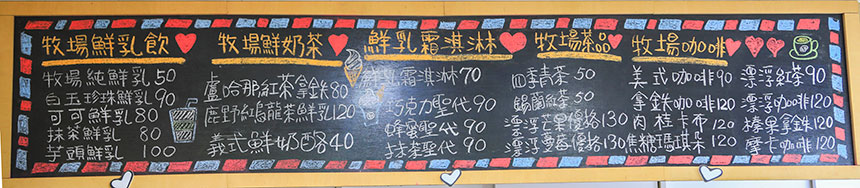 牧場鮮乳飲
牧場純鮮乳50
白玉珍珠鮮乳90
可可鮮乳80
抹茶鮮乳 80
芋頭鮮乳 100
牧場鮮奶茶
盧哈那紅茶拿鉄80
鹿野紅烏龍茶鮮乳120
義式鮮奶酪40
鮮乳霜淇淋
鮮乳霜淇淋70
巧克力聖代90
蜂蜜聖代 90
抹茶聖代 90
牧場茶品
四季青茶 50
錫蘭紅茶 50
漂浮芒果優格130
漂浮蔓莓優格130
牧場咖啡
美式咖啡90
拿鉄咖啡120
肉桂卡布120
焦糖瑪琪朵120
漂浮紅茶90
漂浮咖啡120
榛果拿鉄120
摩卡咖啡120